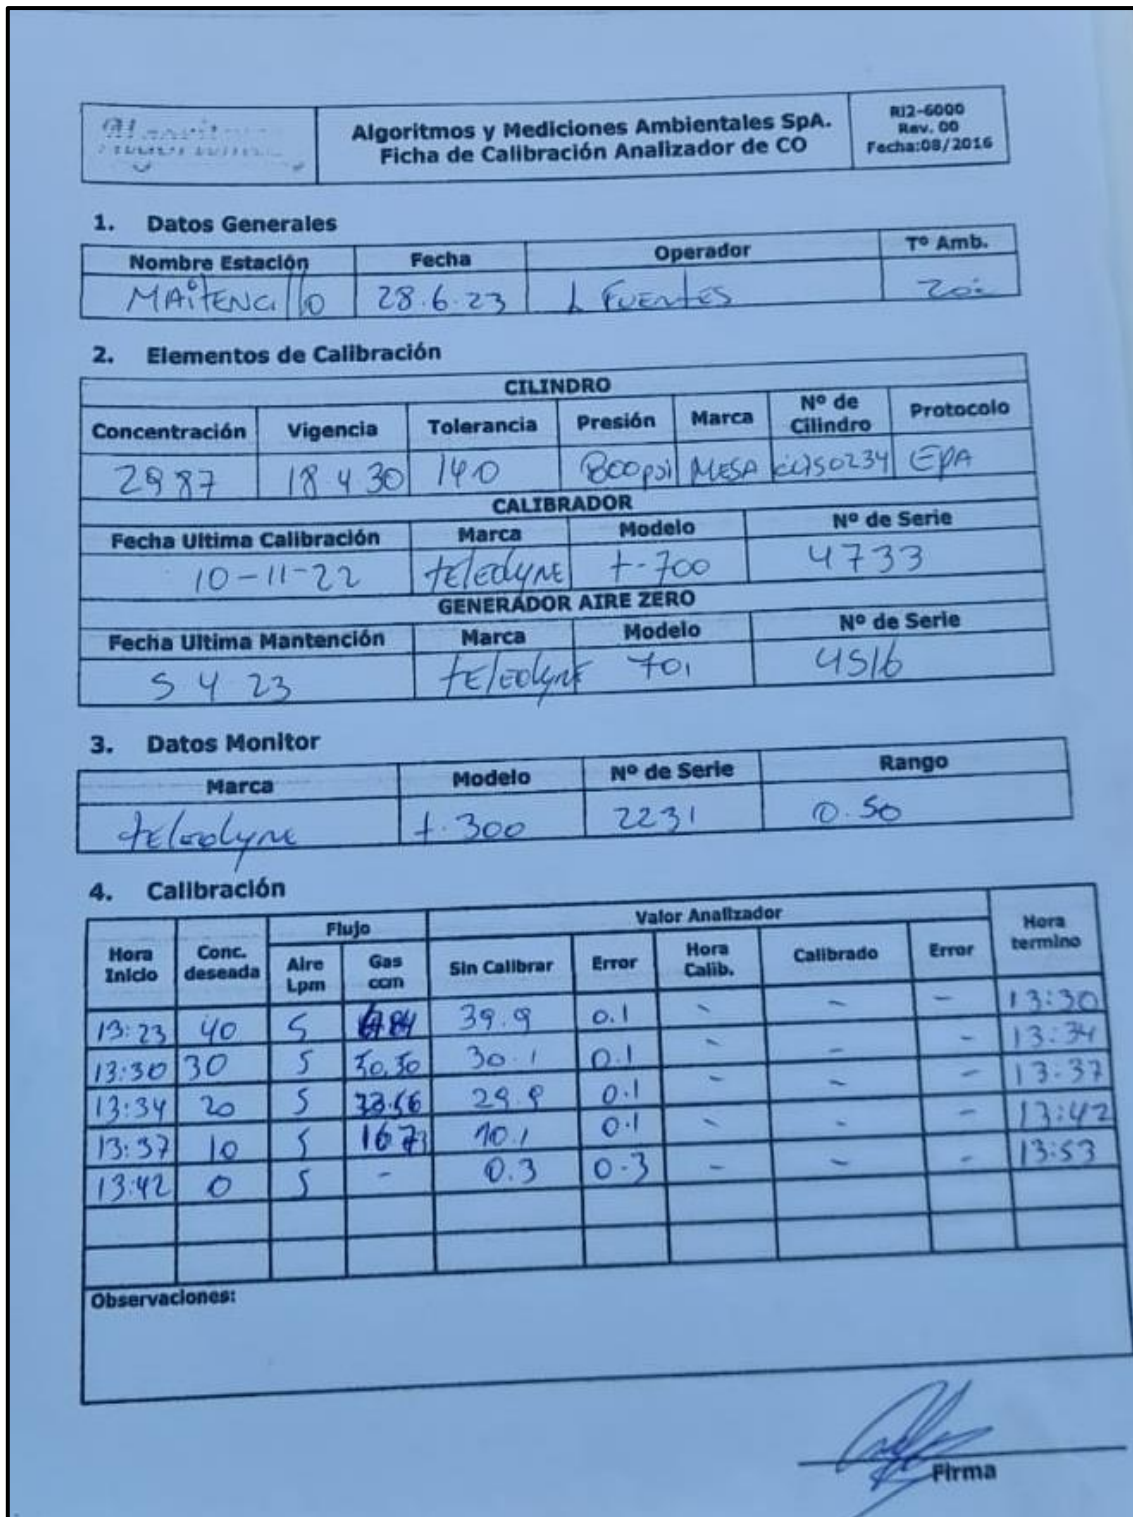 Algoritmos y Mediciones Ambientales SpA.
Ficha de Calibración Analizador de CO
RI2-6000
Rev. 00
Fecha:08/2016
1. Datos Generales
Nombre Estación Fecha Operador Tº Amb.
MAiTENCillo 28.6.23 L FUENTES
2. Elementos de Calibración
CILINDRO
Concentración Vigencia Tolerancia Presión Marca Nº de Cilindro Protocolo
2987 18 4 30 140 800psi MESA EPA
CALIBRADOR
Fecha Ultima Calibración Marca Modelo Nº de Serie
10-11-22 tElEdyNE t-700 4733
GENERADOR AIRE ZERO
Fecha Ultima Mantención Marca Modelo Nº de Serie
5 4 23 tElEdyNE 701 4516
3. Datos Monitor
Marca Modelo Nº de Serie Rango
teledyne t.300 2231 0.50
4. Calibración
Flujo Valor Analizador
Hora Inicio Conc. deseada Aire Lpm Gas ccm Sin Calibrar Error Hora Calib. Calibrado Error Hora termino
13:23 40 5 39.9 0.1 - - - 13:30
13:30 30 5 50.50 30.1 0.1 - - - 13:34
13:34 20 5 0.1 - - - 13:37
13:37 10 5 16.73 10.1 0.1 - - - 13:42
13:42 0 5 - 0.3 0.3 - - - 13:53
Observaciones:
Firma